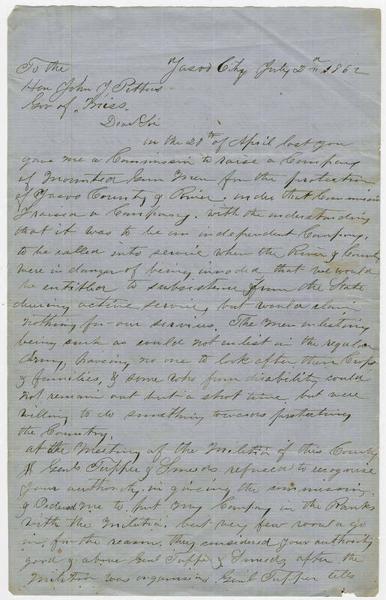 Yazoo City July 2nd 1862
To the
Hon John J. Pettus
Gov of Miss.
Dear Sir
in the 20th of April last you
gave me a Commission to raise a Company
of Mounted Gun Men for the protection
of Yazoo County & River, under that Commission
I raised a Company, with the understanding
that it was to be an independent Company,
to be called into service when the River & County
were in danger of being invaded that we would
be entitled to subsistence from the State
during active service, but would claim
nothing for our services. The men enlisting
being such as could not enlist in the regular
Army, having no one to look after their Crops
& families, & some who from disability could
not remain out but a short time, but were
willing to do something towards protecting
the Country.
at the Meeting of the Militia of this County
Genls Tupper & refused to recognise
your authority in giving the commission,
& Ordered me to put my Company in the Ranks
with the Militia, but very few would go
in for the reason, they considered your authority
good & above Genl Tupper & after the
Militia was organised Genl Tupper tells